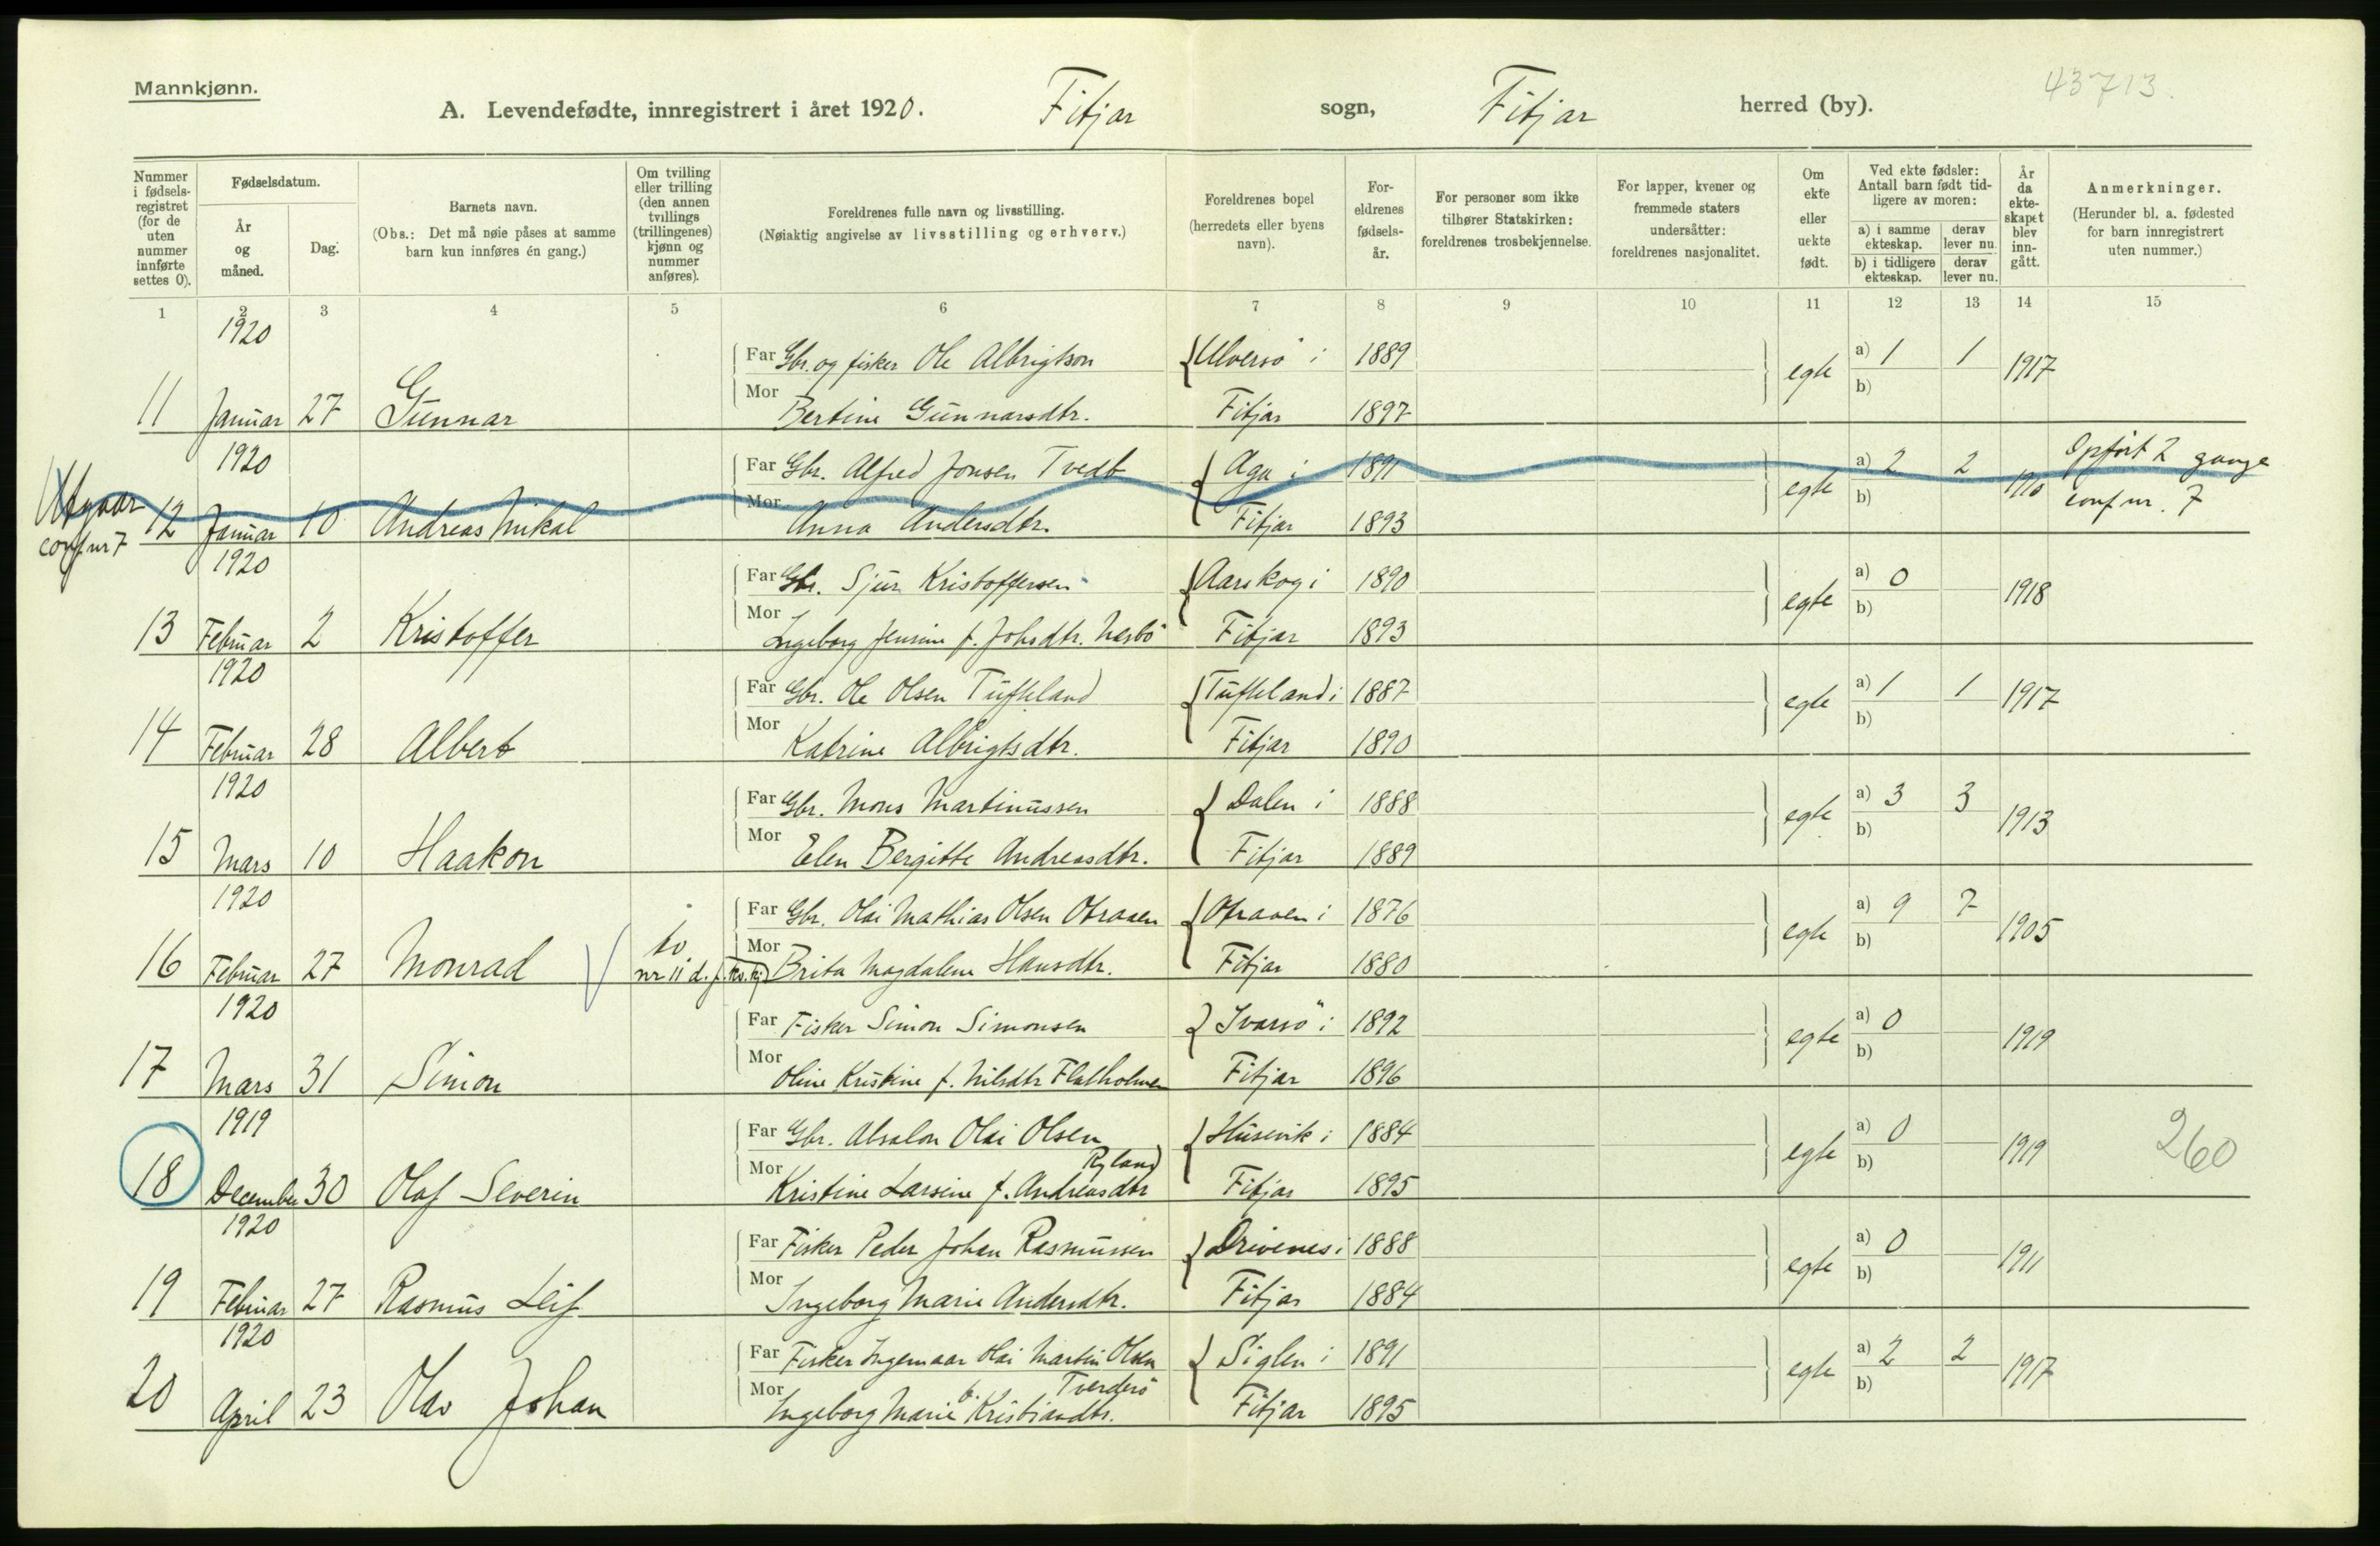 Mannkjønn.
43713.
A. Levendefødte, innregistrert i året 1920. Fitjar sogn, Fitjar herred (by).
Nummer i fødsels-registret (for de uten nummer innførte settes 0).
Fødselsdatum.
År og måned.
Dag.
Barnets navn.
(Obs.: Det må nøie påses at samme barn kun innføres én gang.)
Om tvilling eller trilling (den annen tvillings (trillingenes) kjønn og nummer anføres).
Foreldrenes fulle navn og livsstilling.
(Nøiaktig angivelse av livsstilling og erhverv.)
Foreldrenes bopel (herredets eller byens navn).
For-eldrenes fødsels-år.
For personer som ikke tilhører Statskirken: foreldrenes trosbekjennelse.
For lapper, kvener og fremmede staters undersåtter: foreldrenes nasjonalitet.
Om ekte eller uekte født.
Ved ekte fødsler: Antall barn født tid-ligere av moren:
a) i samme ekteskap. derav lever nu.
b) i tidligere ekteskap. derav lever nu.
År da ekte-skapet blev inn-gått.
Anmerkninger.
(Herunder bl. a. fødested for barn innregistrert uten nummer.)
1 2 3 4 5 6 7 8 9 10 11 12 13 14 15
1920 Far Gbr. og fisker Ole Albrigtson Ulversö i 1889 egte a) 1 1 1917
11 Januar 27 Gunnar Mor Bertine Gunnarsdtr. Fitjar 1897 b)
1920 Far Gbr. Alfred Jonsen Tvedt Aga i 1891 egte a) 2 2 Opført 2 gange
Utgaar 12 Januar 10 Andreas Mikal Mor Anna Andersdtr. Fitjar 1893 b) conf nr. 7
conf nr 7
1920 Far Gbr. Sjur Kristoffersen Aarskog i 1890 egte a) 0 1918
13 Februar 2 Kristoffer Mor Ingeborg Jensine f. Johsdtr. Nesbö Fitjar 1893 b)
1920 Far Gbr. Ole Olsen Tufteland Tufteland i 1887 egte a) 1 1 1917
14 Februar 28 Albert Mor Katrine Albrigtsdtr. Fitjar 1890 b)
1920 Far Gbr. Mons Martinussen Dalen i 1888 egte a) 3 3 1913
15 Mars 10 Haakon Mor Elen Bergitte Andreasdtr. Fitjar 1889 b)
1920 Far Gbr. Olai Mathias Olsen Otraaen Otraaen i 1876 egte a) 9 7 1905
16 Februar 27 Monrad to nr 11 d. f. kv. kj. Mor Brita Magdalene Hansdtr. Fitjar 1880 b)
1920 Far Fisker Simon Simonsen Ivarsö i 1892 egte a) 0 1919
17 Mars 31 Simon Mor Oline Kristine f. Nilsdtr Flatholmen Fitjar 1896 b)
1919 Far Gbr. Absalon Olai Olsen Husevik i 1884 egte a) 0 1919 260
18 December 30 Olaf Severin Mor Kristine Larsine f. Andreasdtr Ryland Fitjar 1895 b)
1920 Far Fisker Peder Johan Rasmussen Drivenes i 1888 egte a) 0 1911
19 Februar 27 Rasmus Leif Mor Ingeborg Marie Andersdtr. Fitjar 1884 b)
1920 Far Fisker Ingemaar Olai Martin Olsen Siglen i 1891 egte a) 2 2 1917
20 April 23 Olav Johan Mor Ingeborg Marie f. Kristiandtr. Tverderö Fitjar 1895 b)